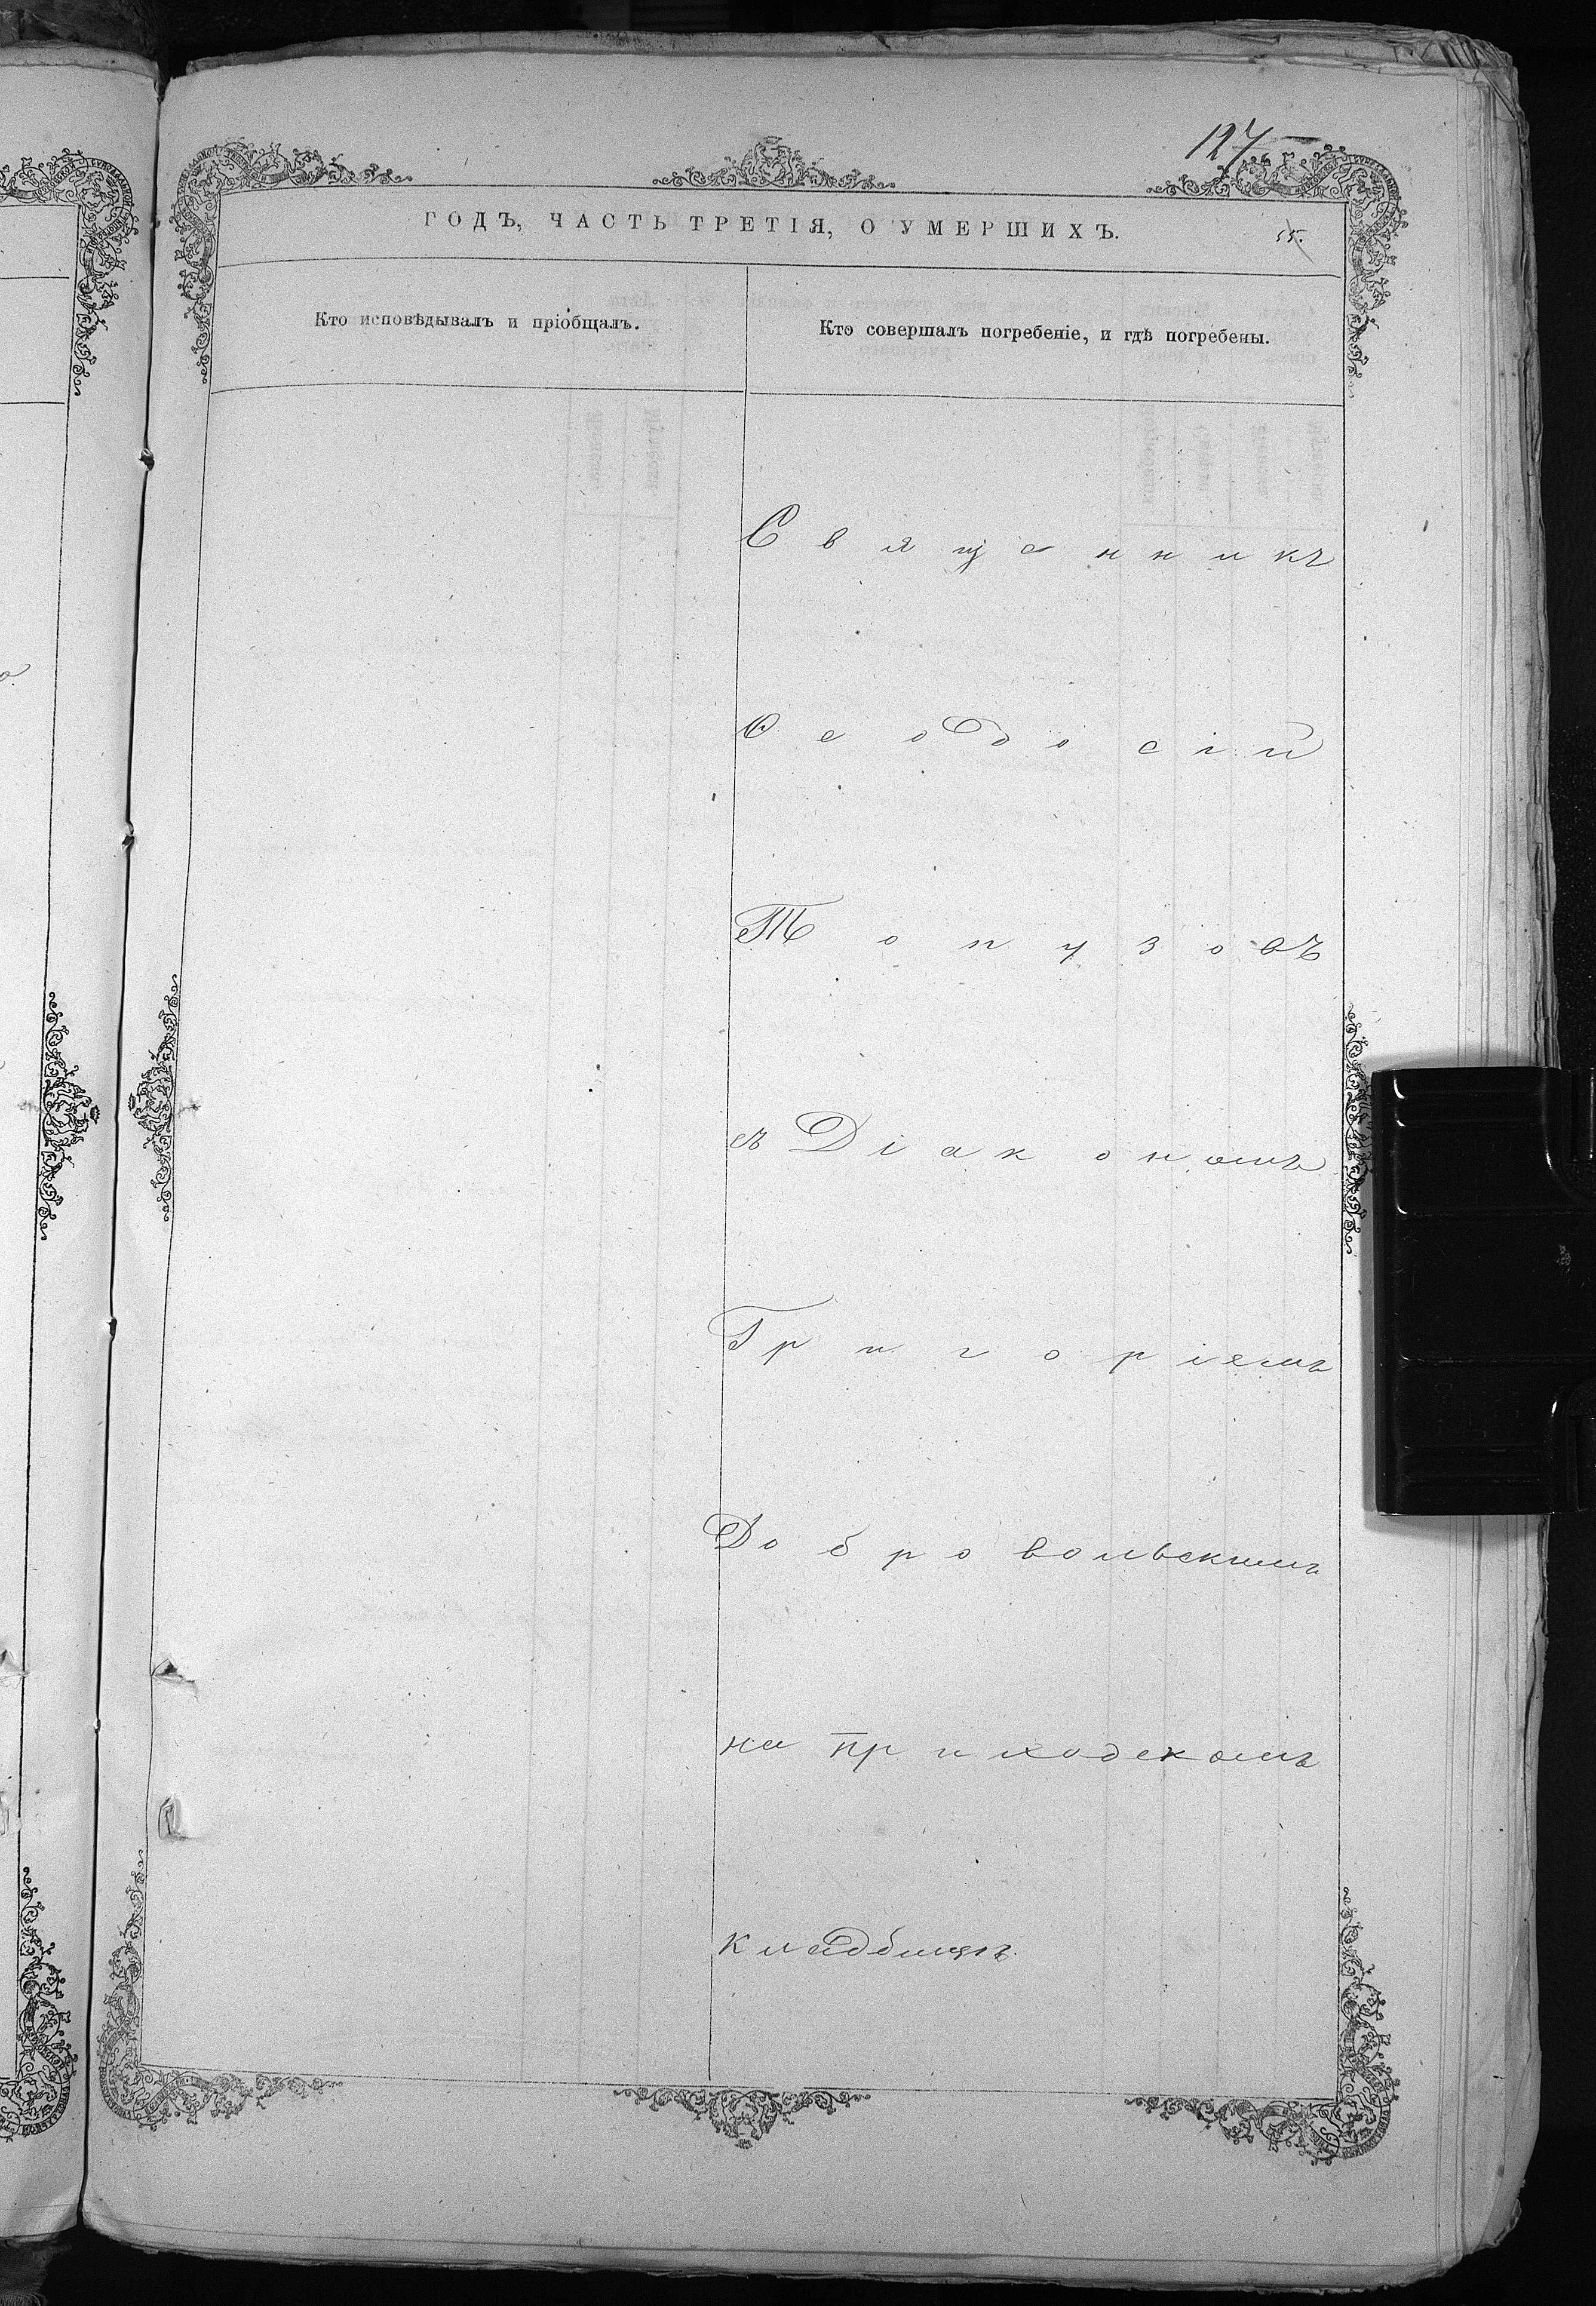 127
ГОДЪ, ЧАСТЬ ТРЕТІЯ, О УМЕРШИХЪ.
55.
Кто исповѣдывалъ и пріобщалъ.
Кто совершалъ погребеніе, и гдѣ погребены.
Священникъ
Ѳеодосій
Топузовъ
съ Діакономъ
Григоріемъ
Добровольскимъ
на приходскомъ
кладбищѣ.